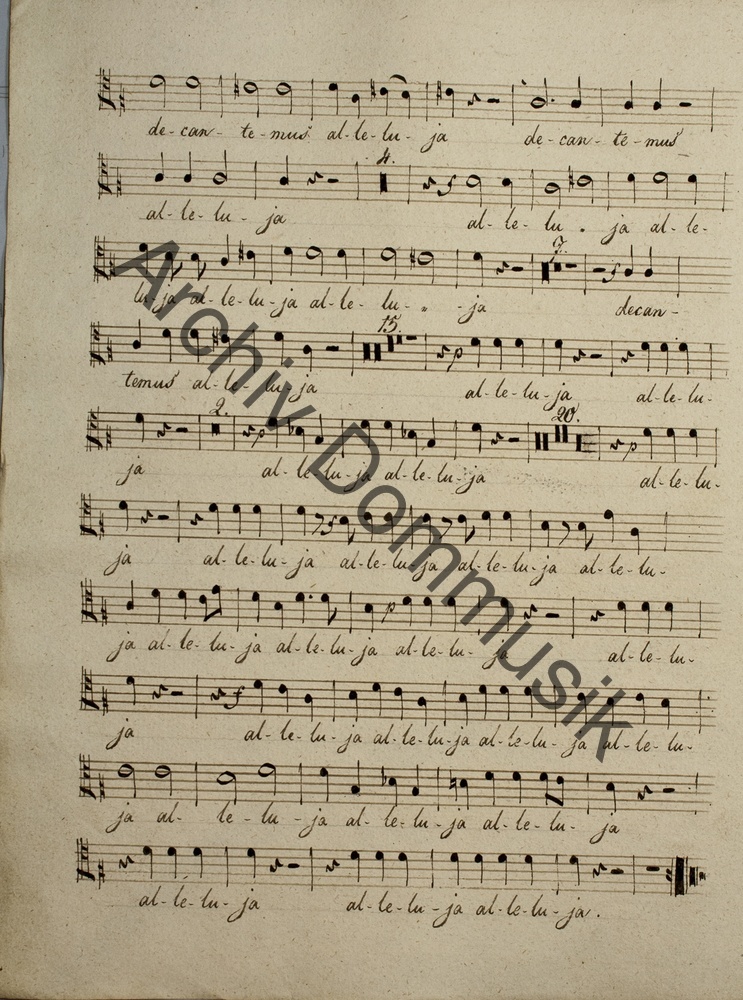 de-can- te-mus al-le-lu-ja de-can-te-mus
4.
f
al-le-lu-ja al-le-lu-ja al-le-
7.
f
lu-ja al-le-lu-ja al-le-lu-ja decan-
15.
p
temus al-le-lu-ja al-le-lu-ja al-le-lu-
2.
20.
p p
ja al-le-lu-ja al-le-lu-ja al-le-lu-
f
ja al-le-lu-ja al-le-lu-ja al-le-lu-ja al-le-lu-
p
ja al-le-lu-ja al-le-lu-ja al-le-lu-ja al-le-lu-
f
ja al-le-lu-ja al-le-lu-ja al-le-lu-ja al-le-lu-
ja al-le-lu-ja al-le-lu-ja al-le-lu-ja
al-le-lu-ja al-le-lu-ja al-le-lu-ja.
Archiv Dommusik